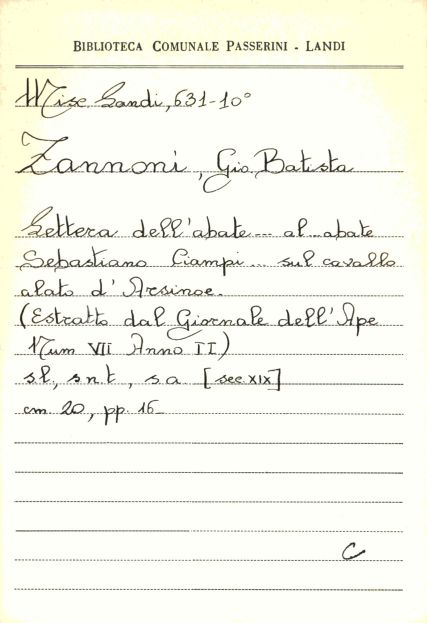 BIBLIOTECA COMUNALE PASSERINI - LANDI
Misc. Landi, 631-10°
Zannoni, Gio. Batista
Lettera dell'abate... al abate
Sebastiano Ciampi... sul cavallo
alato d'Arsinoe.
(Estratto dal Giornale dell'Ape
Num VII Anno II)
s.l., s.n.t., s.a. [sec. XIX]
cm. 20, pp. 16
C